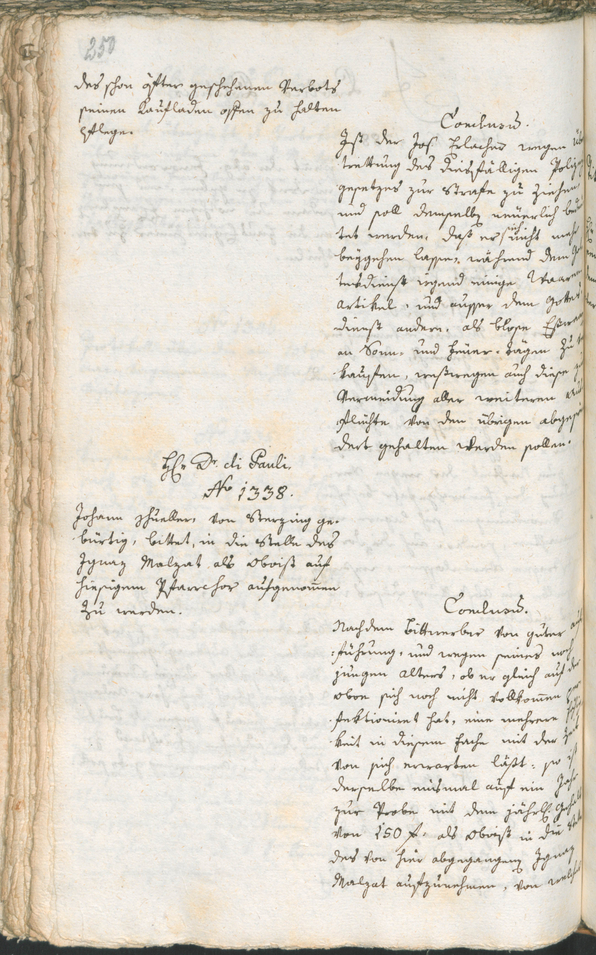 250
des schon öfter geschehenen Verbots
seinen Kaufladen offen zu halten
pflege.
Conclusum.
Ist der Jos: Erlacher wegen
trettung des diesfälligen Polizey
gesetzes zur Strafe zu ziehen
und soll demselben neuerlich
tet werden, daß er sich nicht mehr
beygehen lasse, während dem
tesdienst irgend einige Waaren
artikel, und ausser dem Gottes
dienst andere, als blose Eßwaaren
an Sonn- und Feuer-tägen zu
kaufen, weßwegen auch diese
Vermeidung aller weiteren
flüchte von den übrigen abgeson
dert gehalten werden sollen.
H: Dr. di Pauli.
No 1338.
Johann Schueller, von Sterzing ge-
bürtig, bittet, in die Stelle des
Ignaz Malzat als Oboist auf
hiesigem Pfarrchor aufgenommen
zu werden.
Conclusum.
Nachdem Bittwerber von guter
führung, und wegen seines noch
jungen Alters, ob er gleich auf der
Oboe sich noch nicht vollkommen
fektioniret hat, eine mehrere
keit in diesem Fache mit der Zeit
von sich erwarten läßt: so ist
derselbe einsmal auf ein Jahr
zur Probe mit dem jährl: Gehalt
von 150 f. als Oboist in die Stelle
des von hier abgegangen Ignaz
Malzat aufzunehmen, von welchem